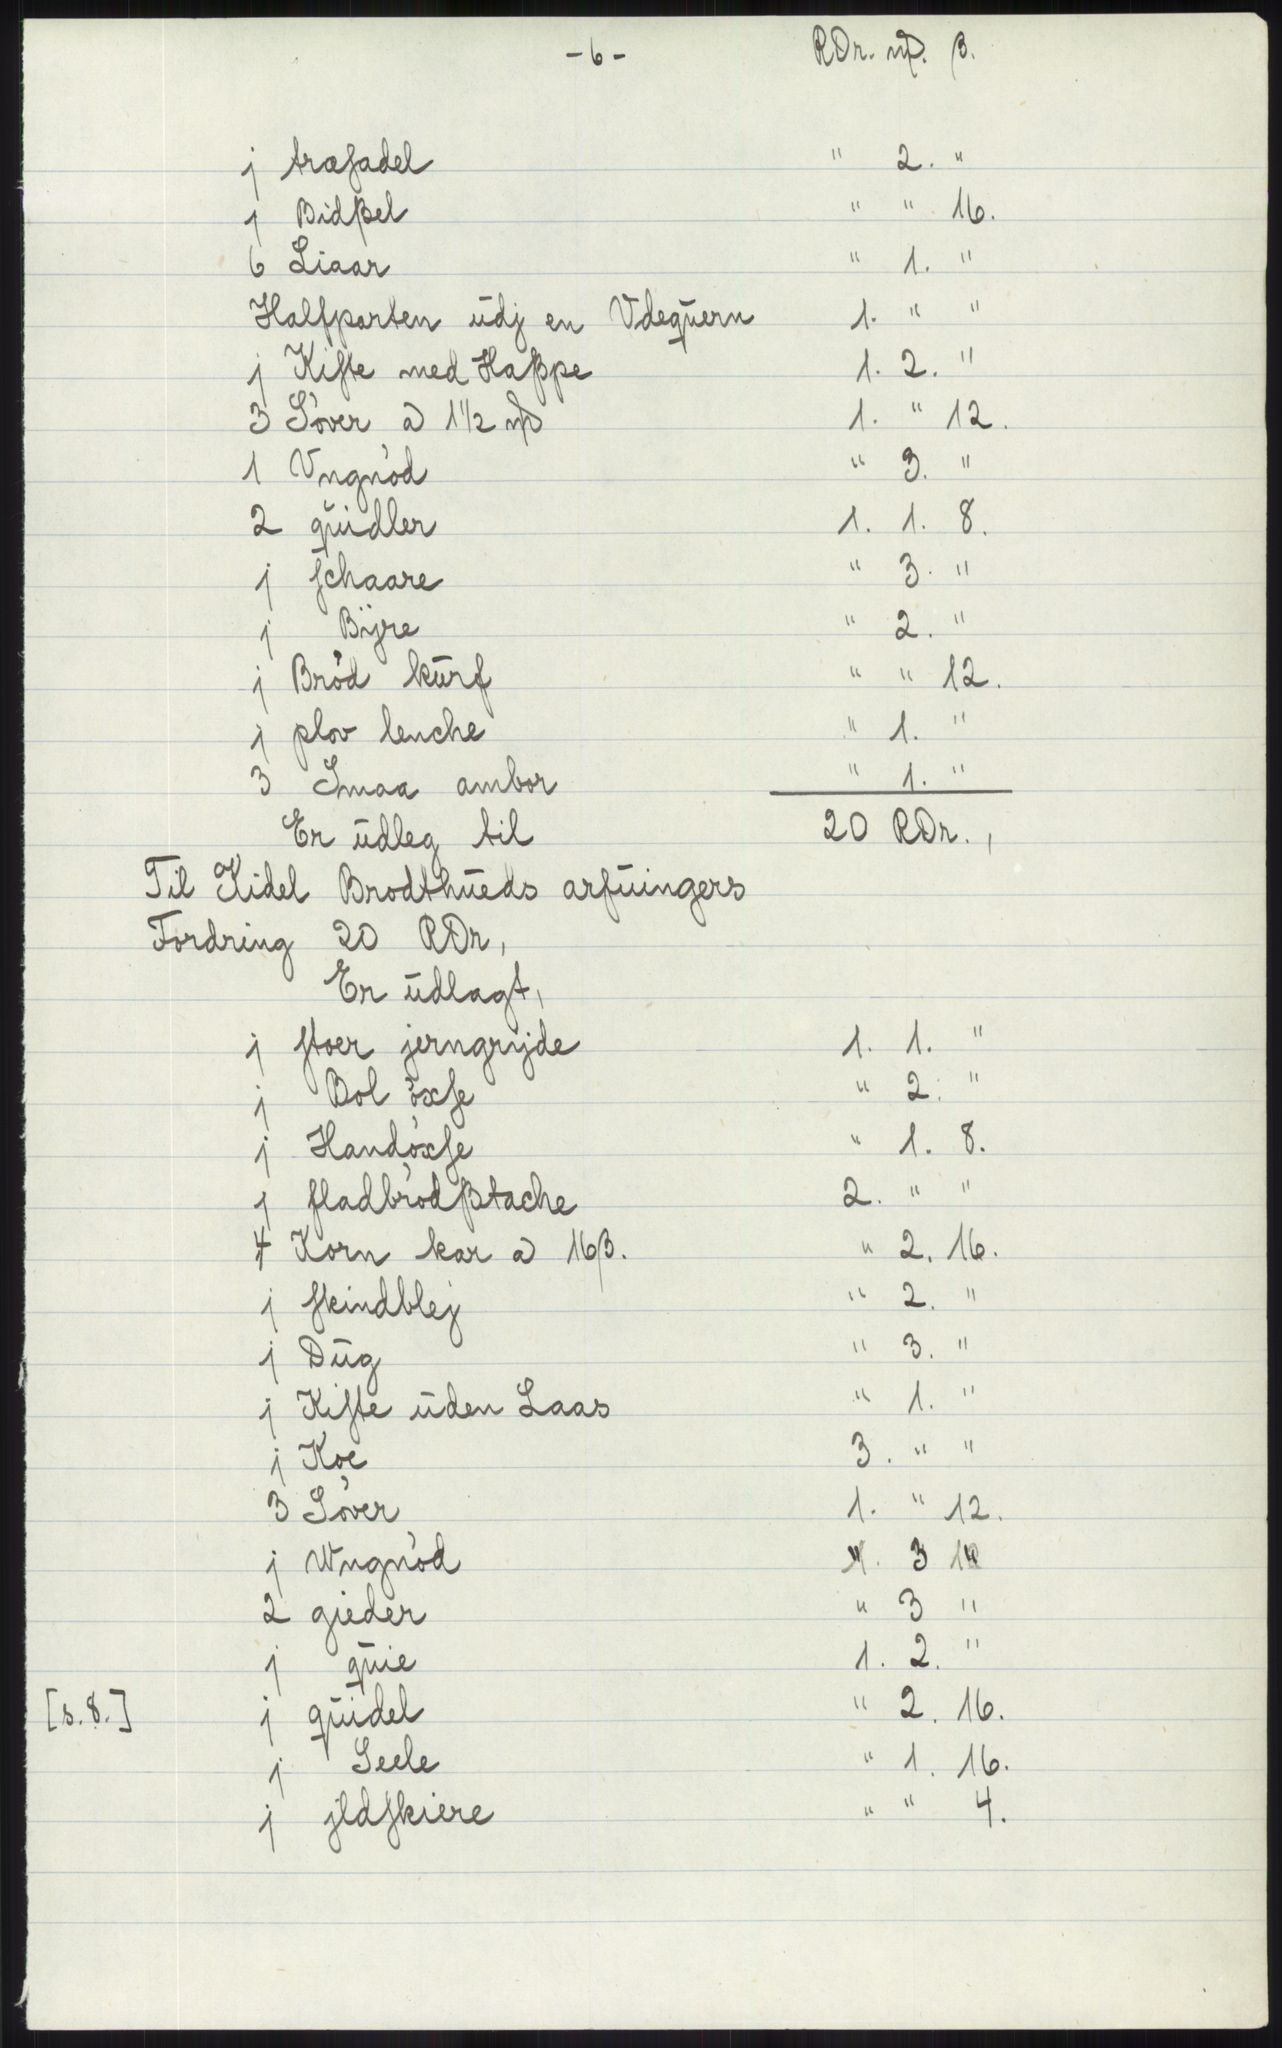 -6- RDr. mɟ. β.
j træfadel " 2. "
j Bidβel " " 16.
6 Liaar " 1. "
Halfparten ūdj en Vdequern 1. " "
j Kiſte med Haβpe 1. 2. "
3 Söver a 1 1/2 mɟ 1. " 12.
1 Vngnöd " 3. "
2 qūidler 1. 1. 8.
j ſchaare " 3. "
j Bijre " 2. "
j Bröd kūrf " " 12.
j plov lenche " 1. "
3 Smaa ambor " 1. "
Er ūdleg til 20 RDr.,
Til Kidel Brodthūeds arfūingers
Fordring 20 RDr,
Er ūdlagt,
j ſtoer jerngrijde 1. 1. "
j Bol öxſe " 2. "
j Handöxſe " 1. 8.
j fladbrödβtache 2. " "
4 Korn kar a 16β. " 2. 16.
j ſkindblej " 2. "
j Dūg " 3. "
j Kiſte ūden Laas " 1. "
j Koe 3. " "
3 Söver 1. " 12.
j Wngnöd " 3
2 gieder " 3 "
j qūie 1. 2. "
[s. 8.] j qūidel " 2. 16.
j Seele " 1. 16.
j jldſkiere " " 4.